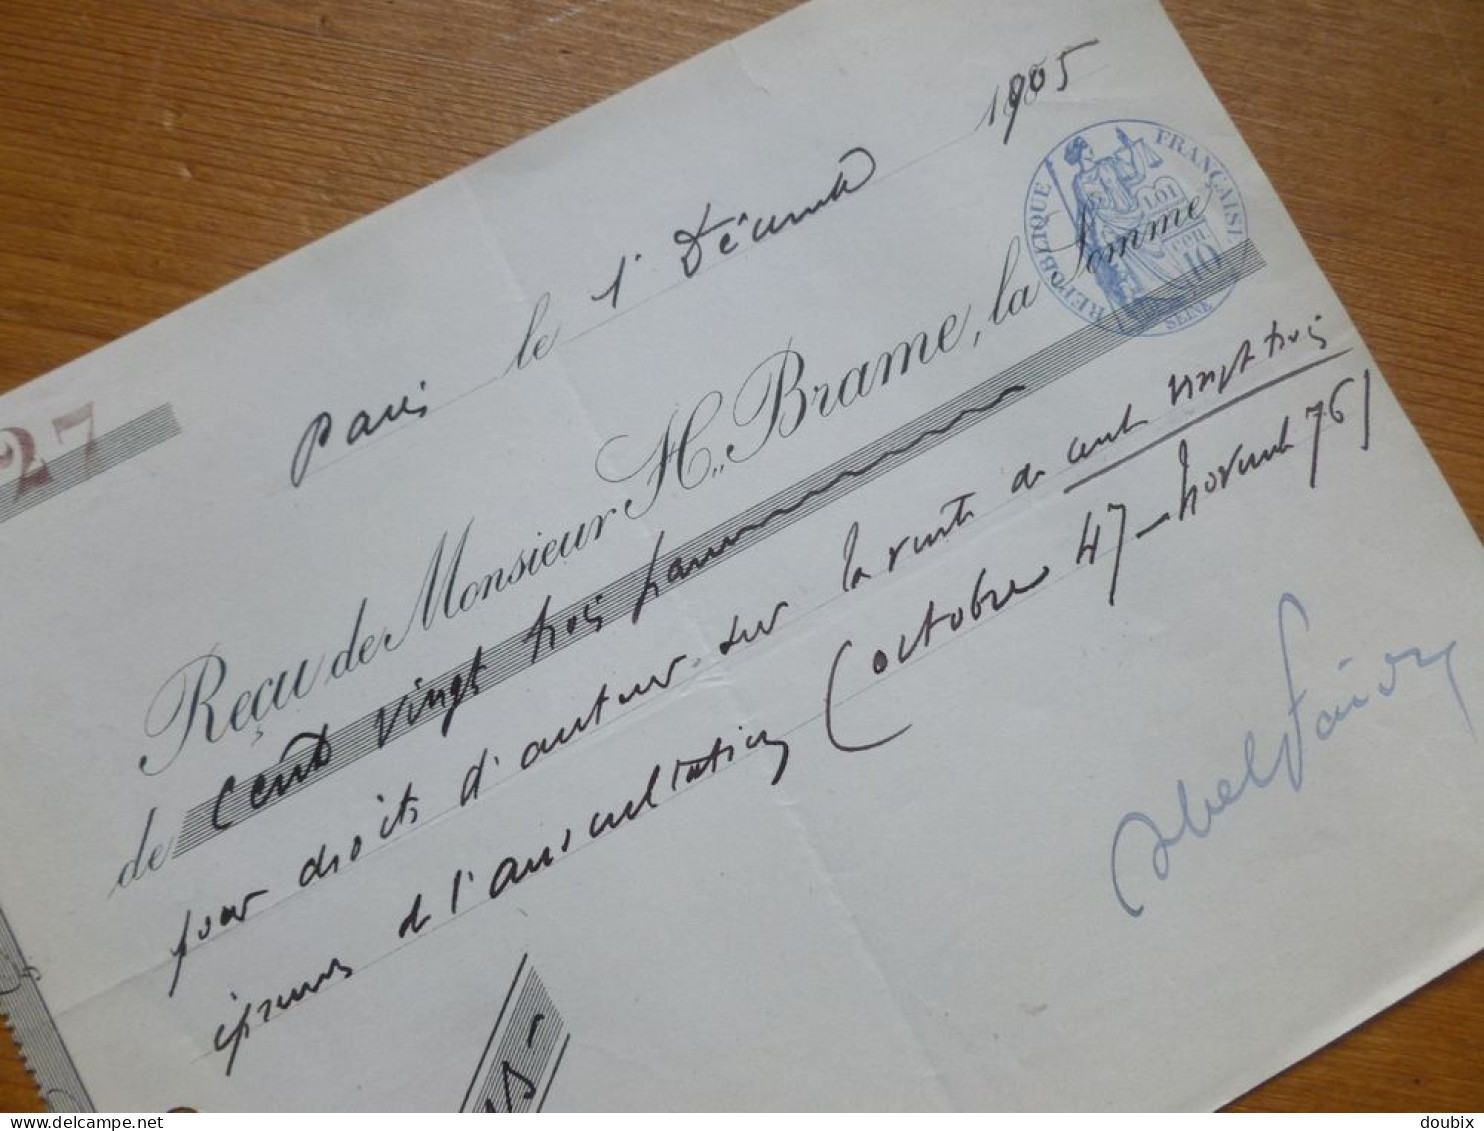 27
Paris le 1er Décembre 1905
REPUBLIQUE FRANÇAISE
LOI
10
SEINE
Reçu de Monsieur H. Brame, la Somme
de Cent vingt trois francs
pour droits d'auteur sur la vente de cent vingt trois
épreuves de l'auscultation (octobre 47 - Novembre 76)
Abel Faivre
delcampe.net
doubix